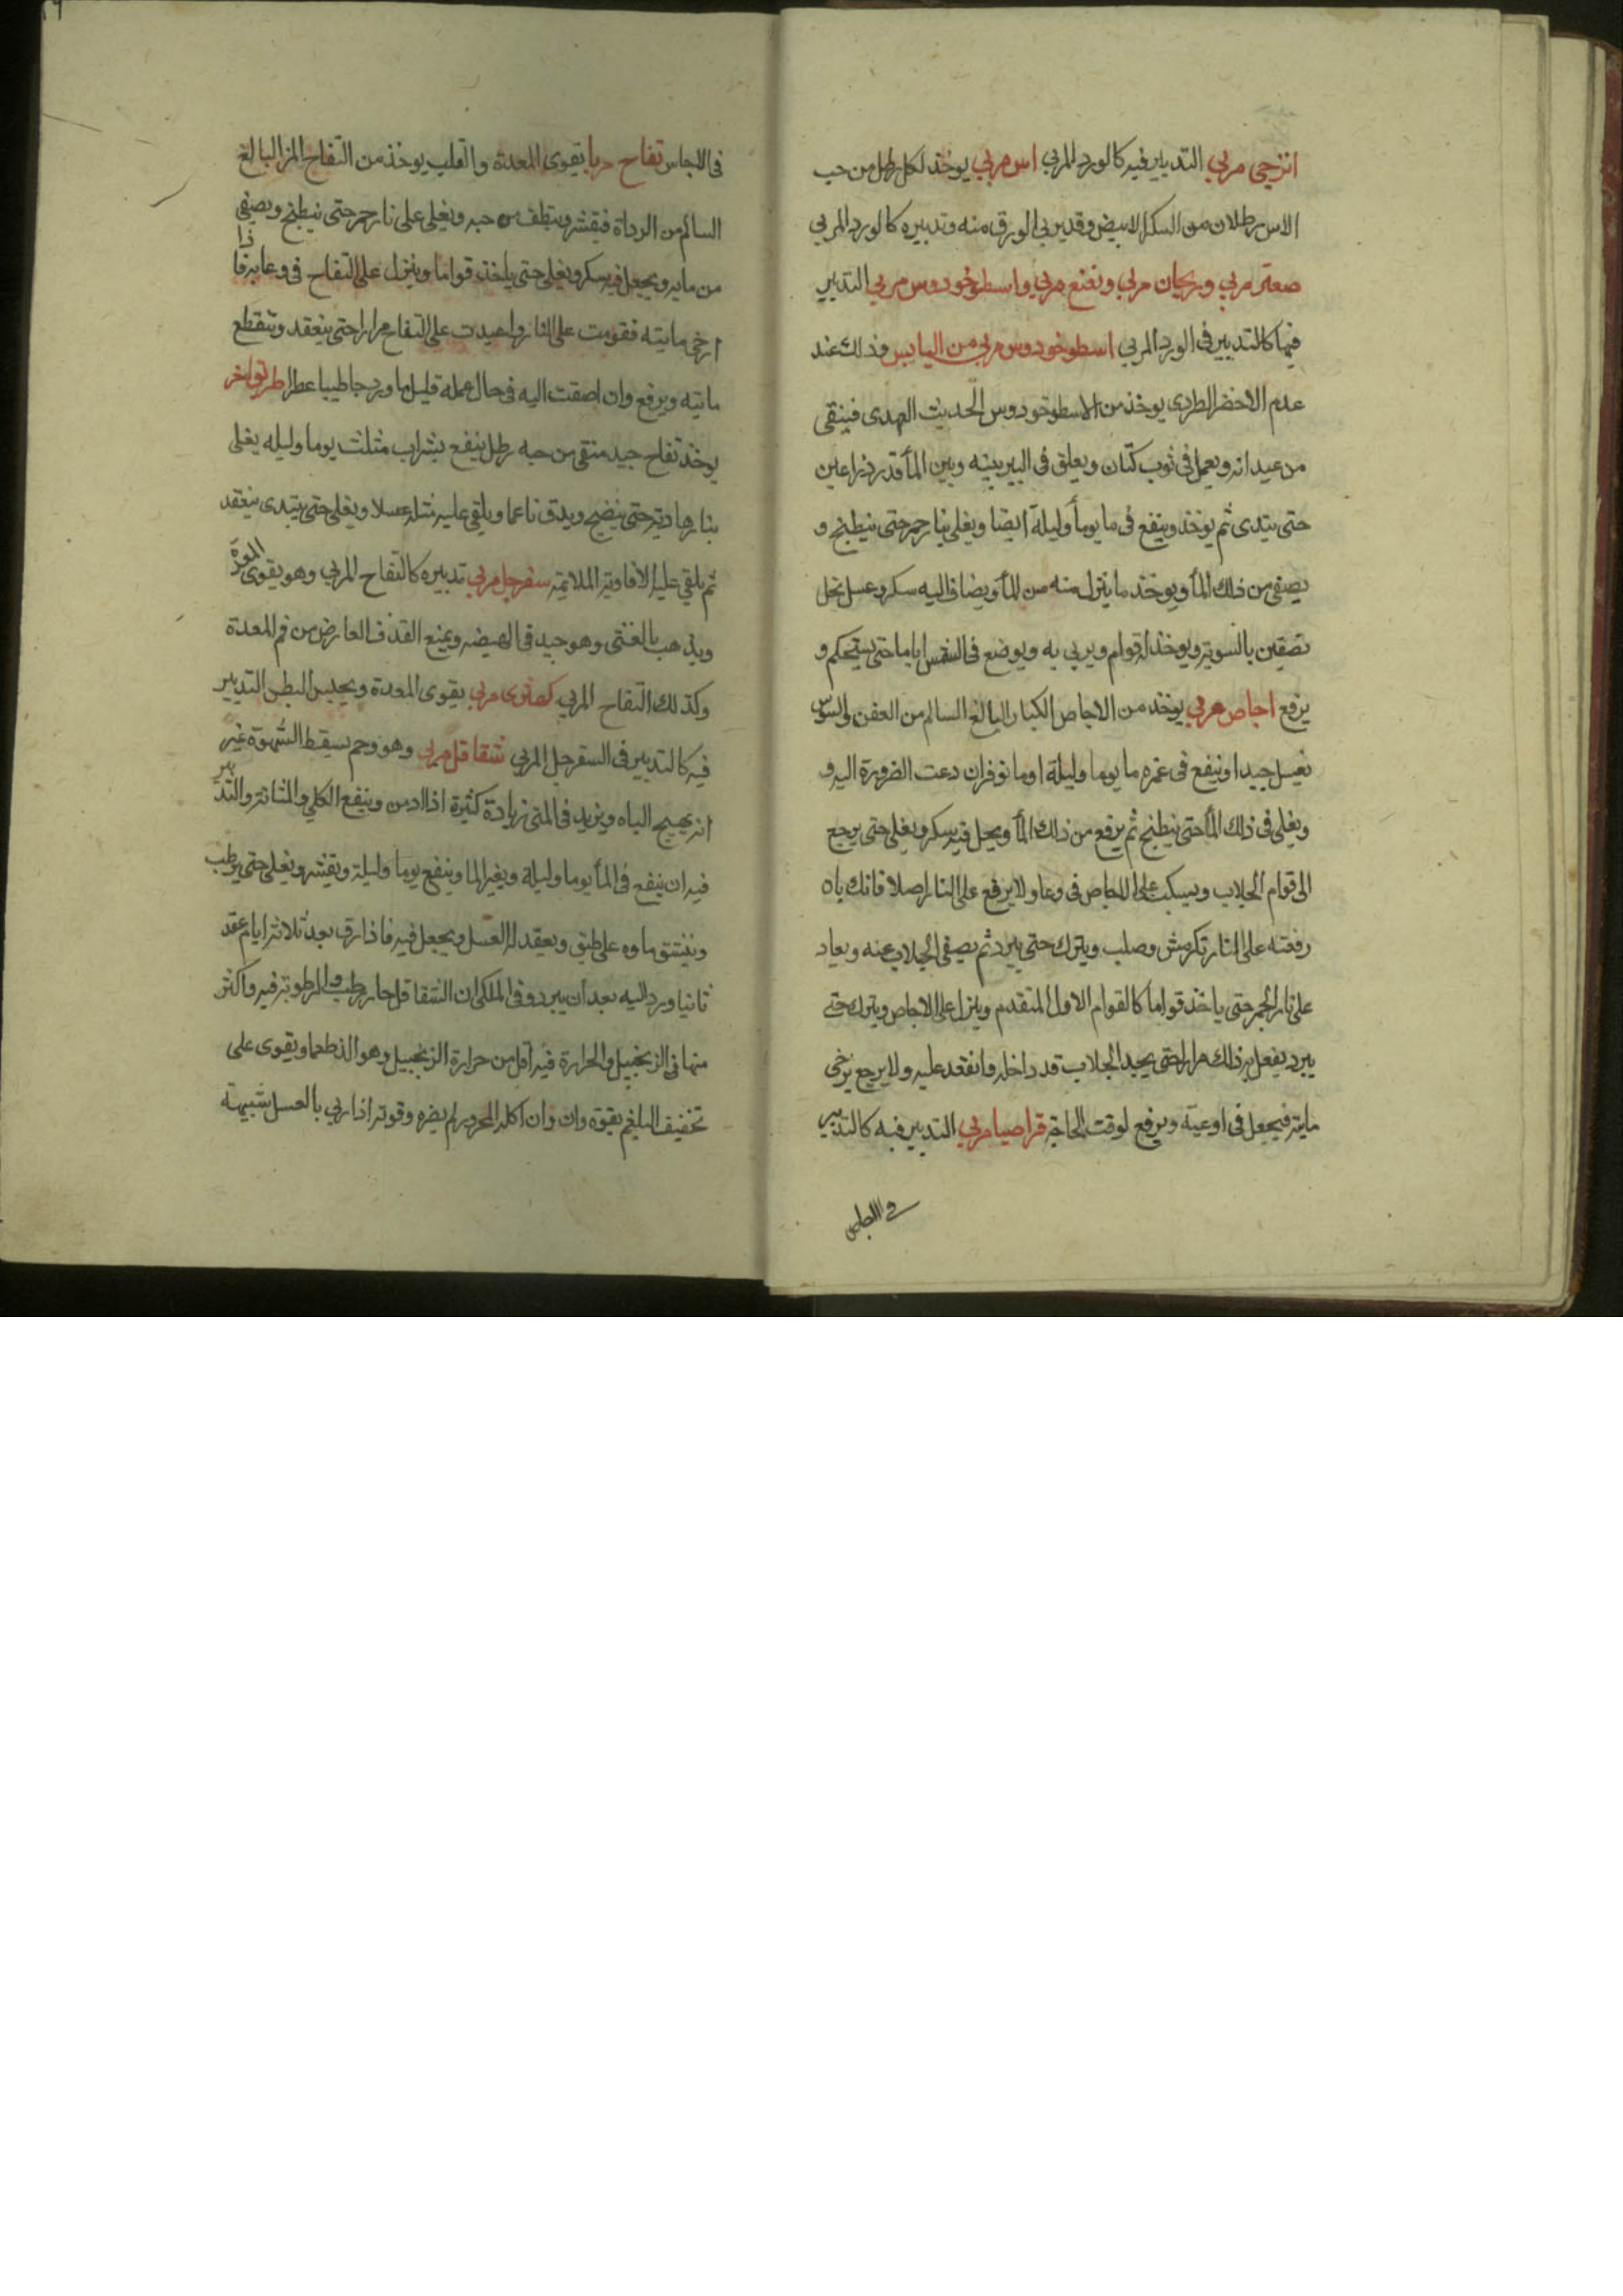 اترجى مربي التدبير فيه كالورد المربي اس مربي يوخذ لكل رطل من حب
الاس رطلان من السكر الابيض وقد يربي الورق منه وتدبيره كالورد المربي
صعتر مربي وريحان مربي ونعنع مربي واسطوخودوس مربي التدبير
فيها كالتدبير في الورد المربي اسطوخودوس مربي من اليابس وذلك عند
عدم الاخضر الطرى يوخذ من الاسطوخودوس الحديث العهدى فينقى
من عيدانه ويعمل في ثوب كتان ويعلق في البير بينه وبين المأ قدر ذراعين
حتى يتدى ثم يوخذ وينقع في ما يوما وليلة ايضا ويغلي بنار جمر حتى ينطبخ و
يصفى من ذلك المأ ويوخذ ما ينزل منه من المأ ويضاف اليه سكر وعسل نحل
نصفين بالسويه ويوخذ له قوام ويربي به ويوضع في الشمس اياما حتى يستحكم و
يرفع اجاص مربي يوخذ من الاجاص الكبار البالغ السالم من العفن والسوس
يغسل جيدا وينقع في غمره ما يوما وليلة او ما نوفر ان دعت الضرورة اليه و
ويغلي في ذلك المأ حتى ينطبخ ثم يرفع من ذلك المأ ويحل فيه سكر ويغلي حتى يرجع
الى قوام الجلاب ويسكب على الاجاص في وعا ولا يرفع على النار اصلا فانك ياه
رفعته على النار تكرمش وصلب ويترك حتى يبرد ثم يصفى الجلاب عنه ويعاد
على نار الجمر حتى ياخذ قواما كالقوام الاول المتقدم وينزل على الاجاص ويترك حتى
يبرد يفعل به ذلك مرارا حتى يجيد الجلاب قد داخله وانعقد عليه ولا يرجع يرخى
مايته فيجعل في اوعية ويرفع لوقت الحاجة قراصيا مربي التدبير فيه كالتدبير
في الاجاص
في الاجاس تفاح مربا يقوى المعدة والقلب يوخذ من التفاح المز البالغ
السالم من الرداة فيقشر وينظف من حبه ويغلي على نار جمر حتى ينطبخ ويصفى
من مايه ويجعل فيه سكر ويغلي حتى ياخذ قواما وينزل على التفاح في وعا به فاذا
ارخى مايته فقومت على النار واعيدت على التفاح مرارا حتى ينعقد وتنقطع
مايته ويرفع وان اضفت اليه في حال عمله قليل ما ورد جا طيبا عطرا طريق اخر
يوخذ تفاح جيد منقى من حبه رطل ينقع بشراب مثلث يوما وليله يغلي
بنار هاديه حتى ينضج ويدق ناعما ويلقى عليه مثله عسلا ويغلي حتى يبتدى ينعقد
ثم يلقى عليه الافاويه الملايمة سفرجل مربي تدبيره كالتفاح المربي وهو يقوى المعدة
ويذهب بالغثى وهو جيد في الهيضه ويمنع القذف العارض من فم المعدة
وكذلك التفاح المربي كمثرى مربي يقوى المعدة ويحبس البطن التدبير
فيه كالتدبير في السفرجل المربي شقاقل مربي وهو وحم يسقط الشهوة غير
انه يهيج الباه ويزيد في المنى زيادة كثيرة اذا ادمن وينفع الكلي والمثانة والتدبير
فيه ان ينقع في المأ يوما وليلة ويغير الما وينقع يوما وليلة ويقشر ويغلي حتى يرطب
وينشق ماوه على طبق ويعقد له العسل ويجعل فيه فاذا رق بعد ثلاثة ايام عقد
ثانيا ورد اليه بعد ان يبرد وفي الملكى ان الشقاقل حار رطب والرطوبة فيه واكثر
منها في الزنجبيل والحرارة فيه اقل من حرارة الزنجبيل وهو الذ طعما ويقوى على
تخفيف البلغم بقوة وان وان اكله المحرور لم يضره وقوته اذا ربي بالعسل شبيهة